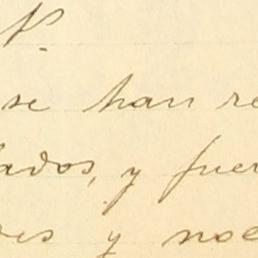 se han re
ados, y fue
es y noc